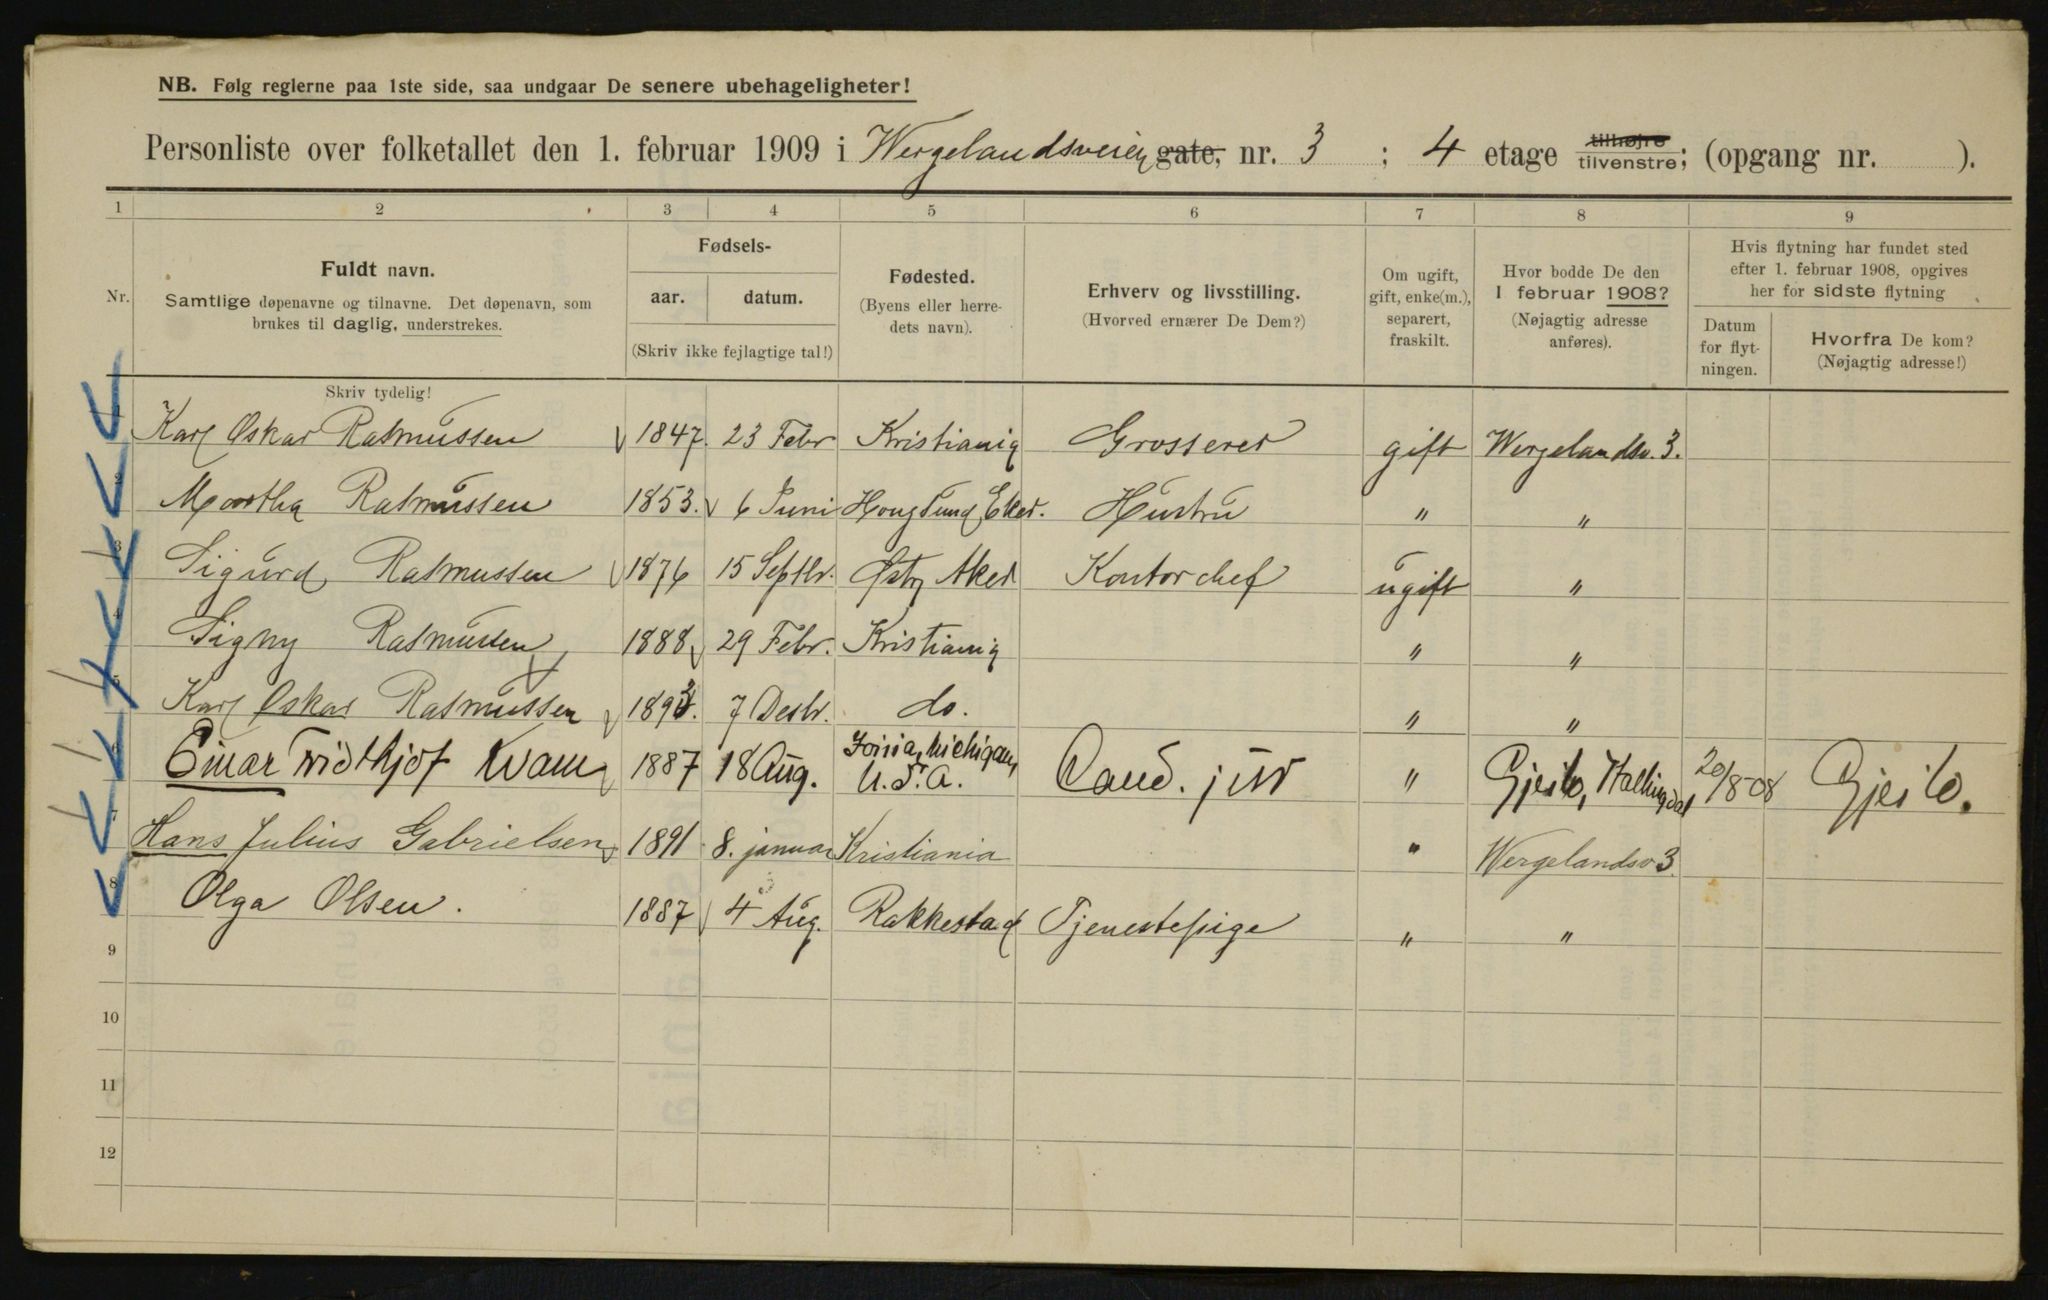 NB. Følg reglerne paa 1ste side, saa undgaar De senere ubehageligheter!
Personliste over folketallet den 1. februar 1909 i Wergelandsveien gate, nr. 3 ; 4 etage tilhøjre tilvenstre; (opgang nr. ).
1 2 3 4 5 6 7 8 9
Nr.
Fuldt navn.
Samtlige døpenavne og tilnavne. Det døpenavn, som
brukes til daglig, understrekes.
Skriv tydelig!
Fødsels-
aar. datum.
(Skriv ikke fejlagtige tal!)
Fødested.
(Byens eller herre-
dets navn).
Erhverv og livsstilling.
(Hvorved ernærer De Dem?)
Om ugift,
gift, enke(m.),
separert,
fraskilt.
Hvor bodde De den
1 februar 1908?
(Nøjagtig adresse
anføres).
Hvis flytning har fundet sted
efter 1. februar 1908, opgives
her for sidste flytning
Datum
for flyt-
ningen.
Hvorfra De kom?
(Nøjagtig adresse!)
1 Karl Oskar Rasmussen 1847. 23 Febr Kristiania Grosserer gift Wergelandsv. 3.
2 Martha Rasmussen 1853. 6 Juni Hougsund, Eker. Hustru " "
3 Sigurd Rasmussen 1876 15 Septbr. Østr Aker Kontorchef ugift "
4 Signy Rasmussen 1888 29 Febr. Kristiania " "
5 Karl Oskar Rasmussen 1893. 7 Desbr. do. " "
6 Einar Fridthjof Kvam 1887 18 Aug. Michigan, U.S.A. Cand. jur " Gjeilo, Hallingdal 20/8-08 Gjeilo.
7 Hans Julius Gabrielsen 1891 8. januar Kristiania " Wergelandsv 3.
8 Olga Olsen. 1887 4 Aug. Rakkestad Tjenestepige " "
9
10
11
12